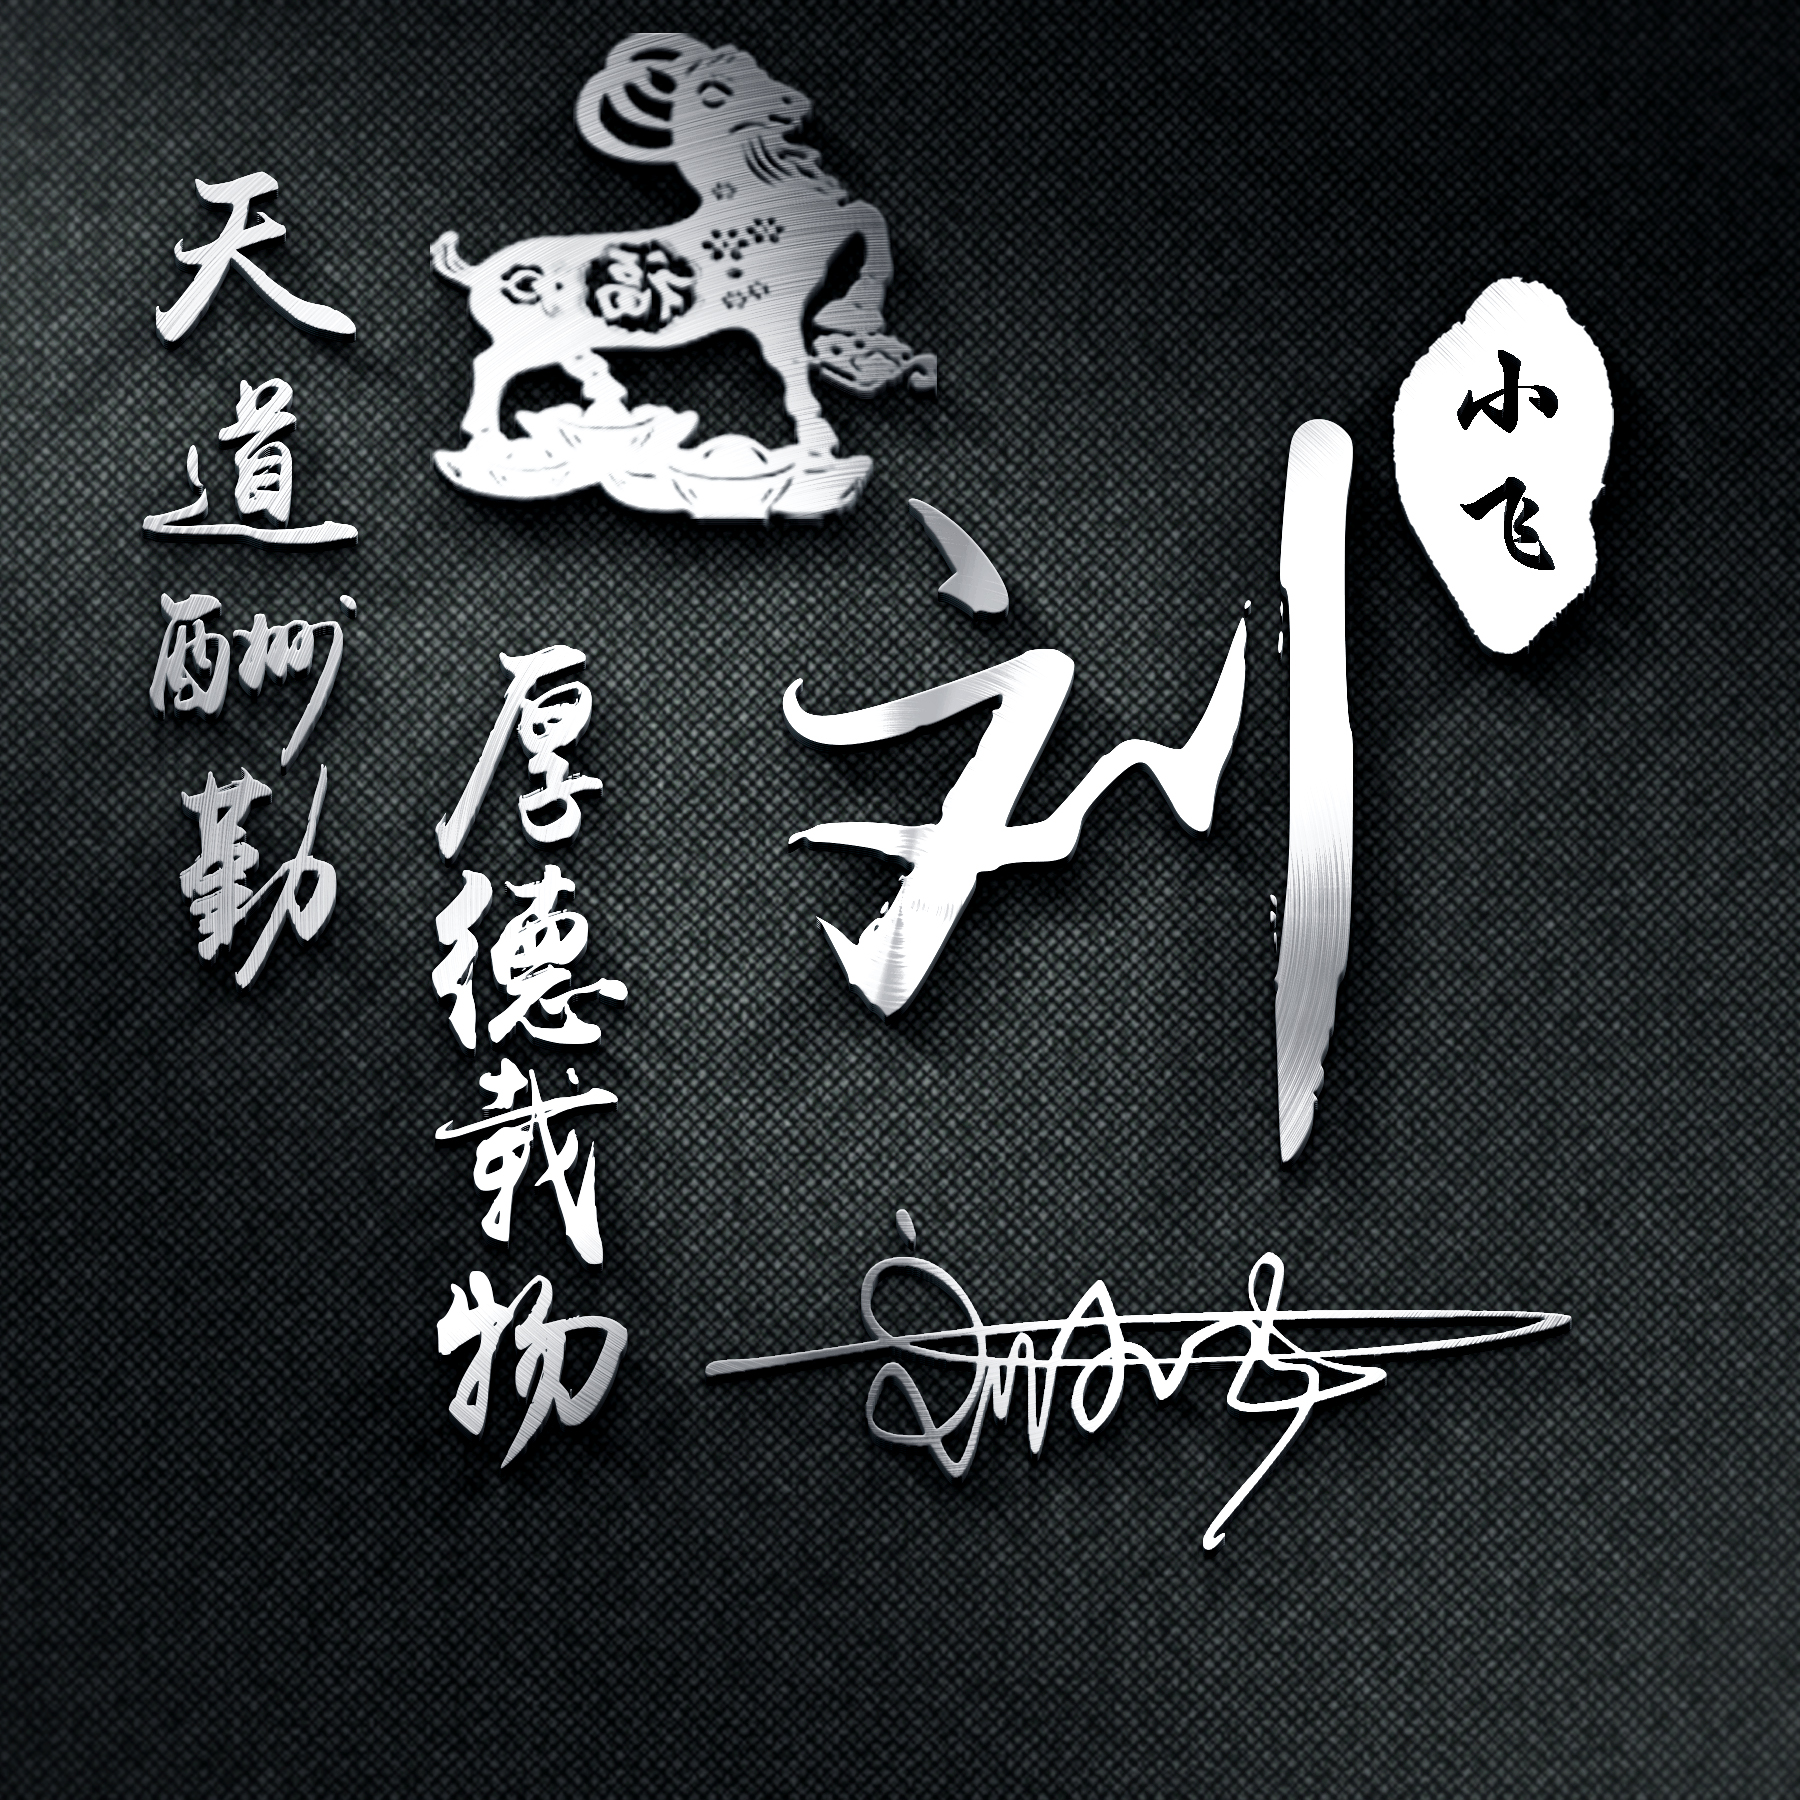 小飞
刘
厚德载物
天道酬勤
福